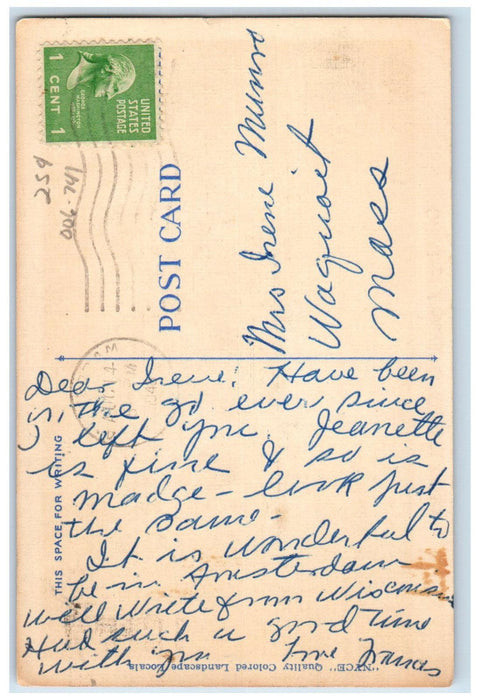 UNITED
STATES
POSTAGE
1 CENT 1
259
006-741
POST CARD
Mrs Irene Munro
Waquoit
Mass
THIS SPACE FOR WRITING
Dear Irene! Have been
in the go ever since
I left you. Jeanette
is fine & so is
Madge - look just
the same -
It is wonderful to
be in Amsterdam
will write from Wisconsin
Had such a good time
with you Love Frances
"NYCE" Quality Colored Landscape Locals